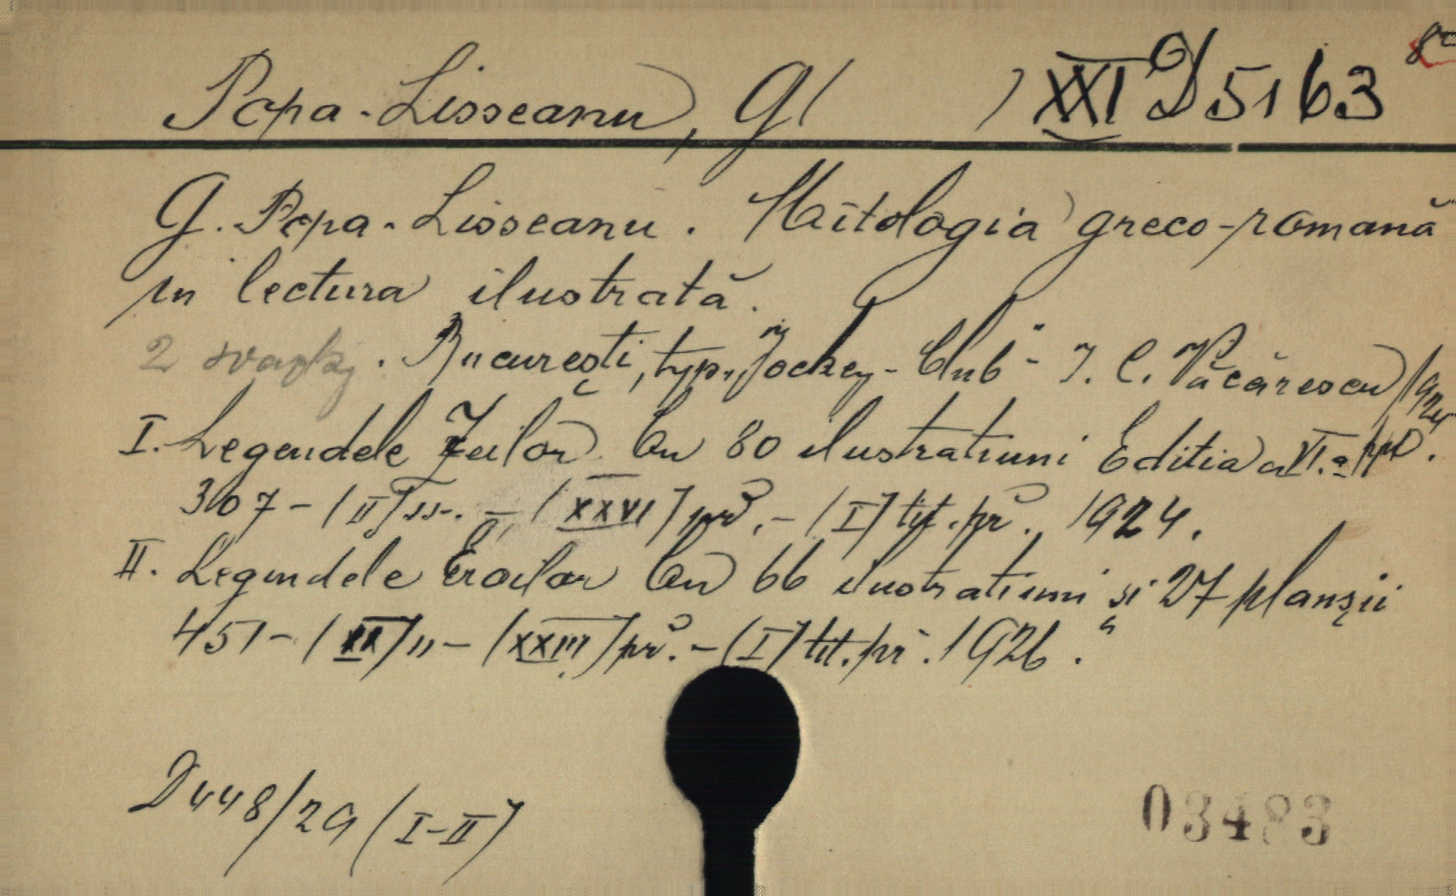 Popa-Lisseanu, G( ) XXI D 5163
G. Popa-Lisseanu. Mitologia greco-romană
in lectura ilustrată.
2 svazky. București, typ. „Jockey-Club" - I. C. Văcărescu
I. Legendele Zeilor Cu 80 ilustratiuni Editia a VI.a
307 - (II) ss. - (XXVI) př. - (I) tit. př. 1924.
II. Legendele Eroilor Cu 66 ilustratiuni și 27 planșii
451 - (XX) ss - (XXIII) př. - (I) tit. př. 1926.
D 448/29 (I-II)
03483